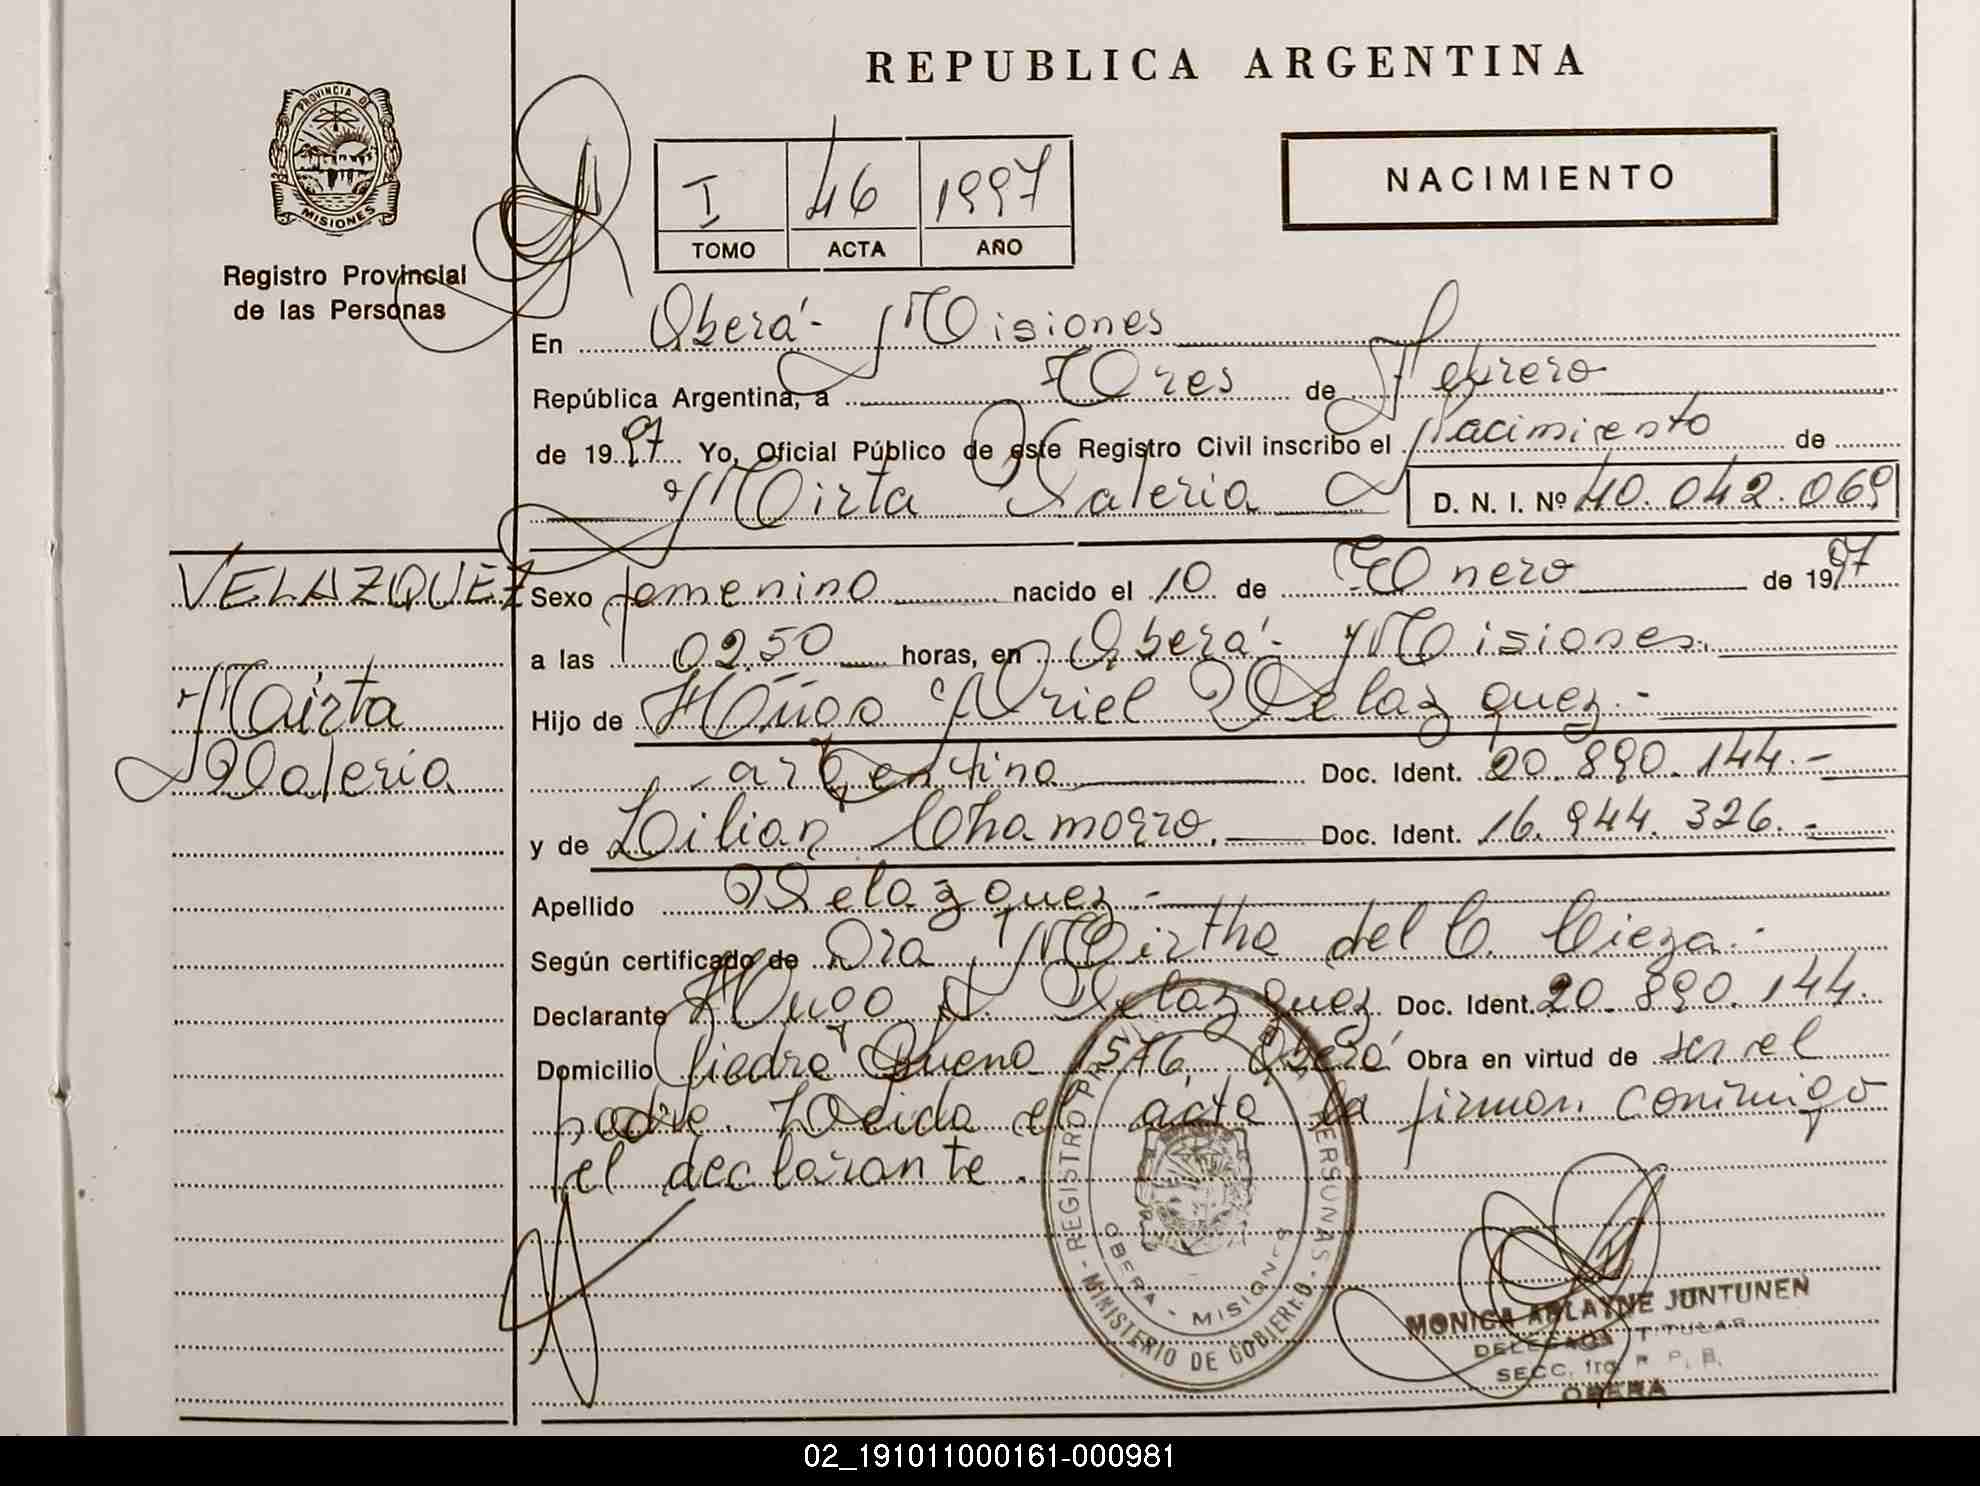 REPUBLICA ARGENTINA
PROVINCIA DE
MISIONES
Registro Provincial
de las Personas
I 46 1997
TOMO ACTA AÑO
NACIMIENTO
En Oberá - Misiones
República Argentina, a Tres de Febrero
de 1997 Yo, Oficial Público de este Registro Civil inscribo el Nacimiento de
Mirta Valeria D. N. I. Nº 40.042.069
VELAZQUEZ
Mirta
Valeria
Sexo femenino nacido el 10 de Enero de 1997
a las 02.50 horas, en Oberá - Misiones.
Hijo de Hugo Ariel Velazquez.-
argentino Doc. Ident. 20.890.144.-
y de Lilian Chamorro. Doc. Ident. 16.944.326.-
Apellido Velazquez.-
Según certificado de Dra Mirtha del C. Cieza.-
Declarante Hugo A. Velazquez Doc. Ident. 20.890.144.
Domicilio Piedra Buena 1576, Oberá Obra en virtud de ser el
padre. Leida el acta la firman conmigo
el declarante.
REGISTRO PROVINCIAL DE LAS PERSONAS - MINISTERIO DE GOBIERNO -
OBERA - MISIONES
MONICA ARLAYNE JUNTUNEN
DELEGADA TITULAR
SECC. 1ra. R. P. P.
OBERA
02_191011000161-000981